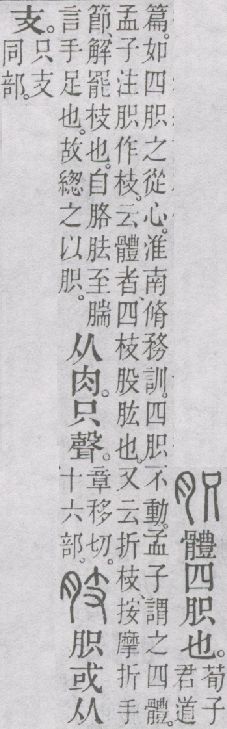 胑 體四胑也。荀子君道
篇。如四胑之從心。淮南脩務訓。四胑不動。孟子謂之四體。
孟子注胑作枝。云體者、四枝股肱也。又云折枝、按摩折手
節解罷枝也。自胳胠至腨言手足也。故總之以胑。从肉。只聲。章移切。十六部。𨈛 胑或从
支。只支同部。